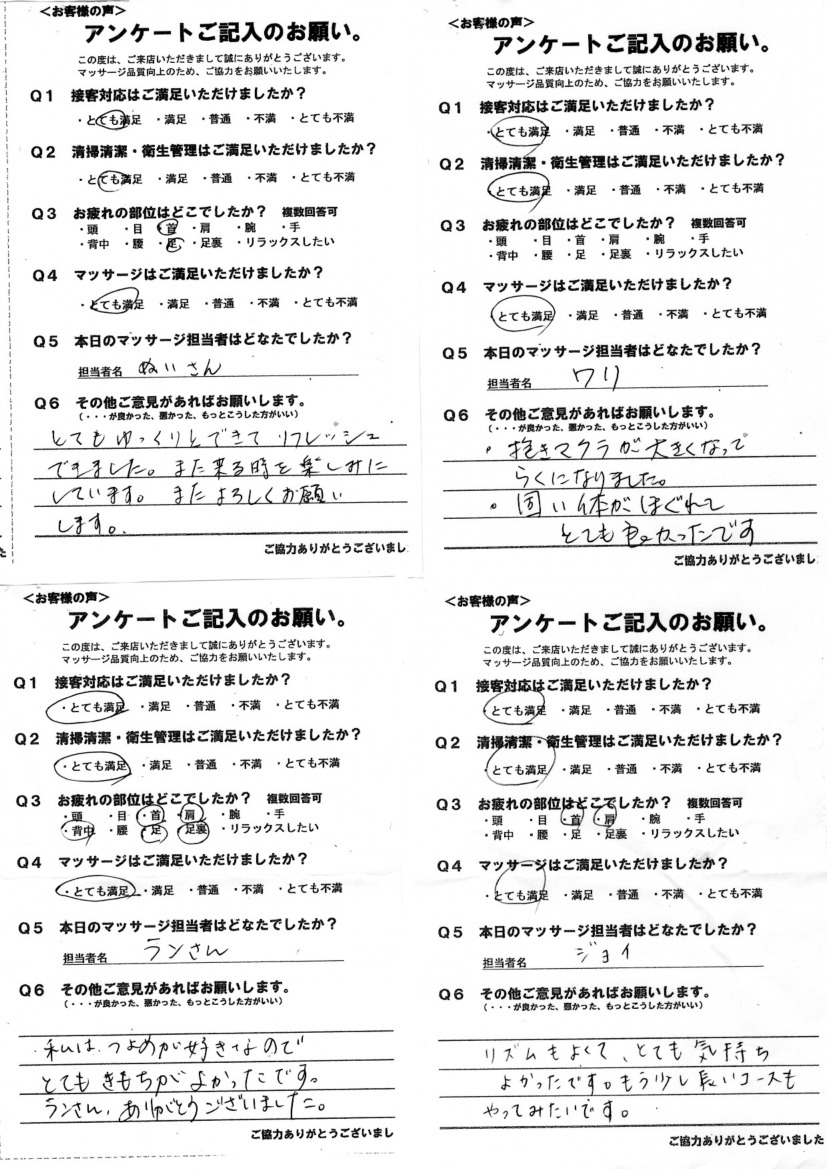 <お客様の声>
アンケートご記入のお願い。
この度は、ご来店いただきまして誠にありがとうございます。
マッサージ品質向上のため、ご協力をお願いいたします。
Q1 接客対応はご満足いただけましたか?
・とても満足 ・満足 ・普通 ・不満 ・とても不満
Q2 清掃清潔・衛生管理はご満足いただけますか?
・とても満足 ・満足 ・普通 ・不満 ・とても不満
Q3 お疲れの部位はどこでしたか? 複数回答可
・頭 ・目 ・首 ・肩 ・腕 ・手
・背中 ・腰 ・足 ・足裏 ・リラックスしたい
Q4 マッサージはご満足いただけましたか?
・とても満足 ・満足 ・普通 ・不満 ・とても不満
Q5 本日のマッサージ担当者はどなたでしたか?
担当者名 ぬいさん
Q6 その他ご意見があればお願いします。
(・・・が良かった、悪かった、もっとこうした方がいい)
とてもゆっくりとできて リフレッシュ
できました。また来る時を楽しみに
しています。またよろしくお願い
します。
ご協力ありがとうございまし
<お客様の声>
アンケートご記入のお願い。
この度は、ご来店いただきまして誠にありがとうございます。
マッサージ品質向上のため、ご協力をお願いいたします。
Q1 接客対応はご満足いただけましたか?
・とても満足 ・満足 ・普通 ・不満 ・とても不満
Q2 清掃清潔・衛生管理はご満足いただけますか?
・とても満足 ・満足 ・普通 ・不満 ・とても不満
Q3 お疲れの部位はどこでしたか? 複数回答可
・頭 ・目 ・首 ・肩 ・腕 ・手
・背中 ・腰 ・足 ・足裏 ・リラックスしたい
Q4 マッサージはご満足いただけましたか?
・とても満足 ・満足 ・普通 ・不満 ・とても不満
Q5 本日のマッサージ担当者はどなたでしたか?
担当者名 ワリ
Q6 その他ご意見があればお願いします。
(・・・が良かった、悪かった、もっとこうした方がいい)
・抱きマクラが大きくなって
らくになりました。
・固い体がほぐれて
とても良かったです
ご協力ありがとうございまし
<お客様の声>
アンケートご記入のお願い。
この度は、ご来店いただきまして誠にありがとうございます。
マッサージ品質向上のため、ご協力をお願いいたします。
Q1 接客対応はご満足いただけましたか?
・とても満足 ・満足 ・普通 ・不満 ・とても不満
Q2 清掃清潔・衛生管理はご満足いただけますか?
・とても満足 ・満足 ・普通 ・不満 ・とても不満
Q3 お疲れの部位はどこでしたか? 複数回答可
・頭 ・目 ・首 ・肩 ・腕 ・手
・背中 ・腰 ・足 ・足裏 ・リラックスしたい
Q4 マッサージはご満足いただけましたか?
・とても満足 ・満足 ・普通 ・不満 ・とても不満
Q5 本日のマッサージ担当者はどなたでしたか?
担当者名 ランさん
Q6 その他ご意見があればお願いします。
(・・・が良かった、悪かった、もっとこうした方がいい)
・私は、つよめが好きなので
とても きもちがよかったです。
ランさん、ありがとうございました。
ご協力ありがとうございまし
<お客様の声>
アンケートご記入のお願い。
この度は、ご来店いただきまして誠にありがとうございます。
マッサージ品質向上のため、ご協力をお願いいたします。
Q1 接客対応はご満足いただけましたか?
・とても満足 ・満足 ・普通 ・不満 ・とても不満
Q2 清掃清潔・衛生管理はご満足いただけますか?
・とても満足 ・満足 ・普通 ・不満 ・とても不満
Q3 お疲れの部位はどこでしたか? 複数回答可
・頭 ・目 ・首 ・肩 ・腕 ・手
・背中 ・腰 ・足 ・足裏 ・リラックスしたい
Q4 マッサージはご満足いただけましたか?
・とても満足 ・満足 ・普通 ・不満 ・とても不満
Q5 本日のマッサージ担当者はどなたでしたか?
担当者名 ジョイ
Q6 その他ご意見があればお願いします。
(・・・が良かった、悪かった、もっとこうした方がいい)
リズムもよくて、とても気持ち
よかったです。もう少し長いコースも
やってみたいです。
ご協力ありがとうございました